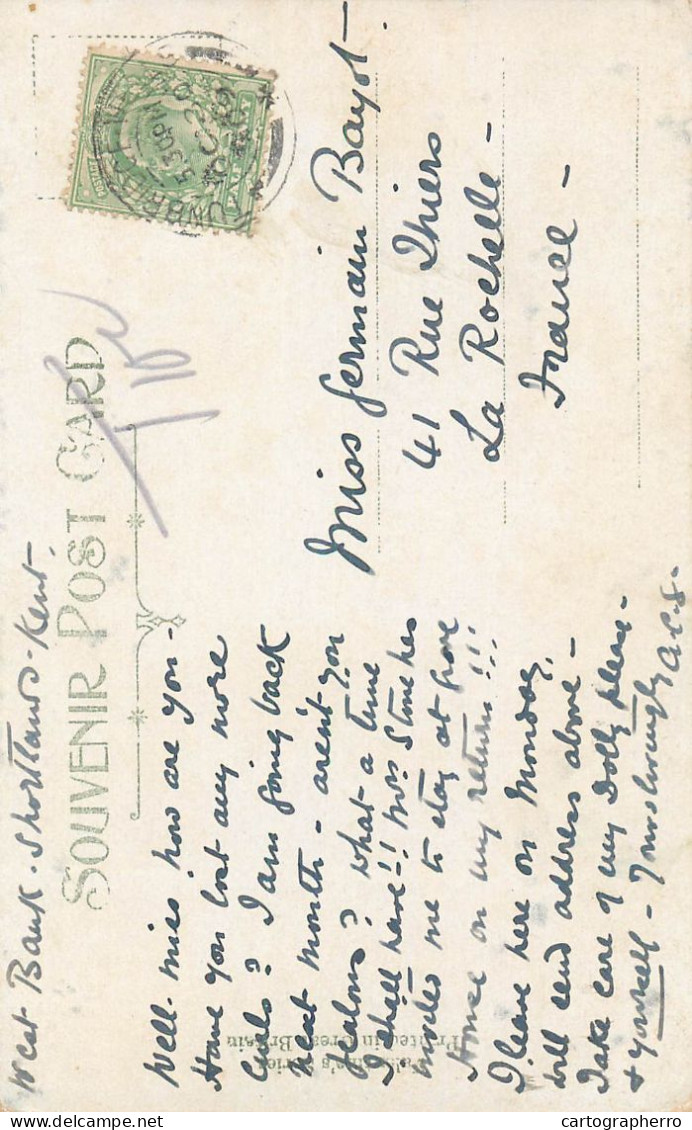 West Bank. Shortlands. Kent.
SOUVENIR POST CARD
Well. miss how are you -
Have you lost any more
Curls? I am going back
next month - aren't you
jealous? What a time
I shall have -!! Mrs Stone has
invited me to stay at home
House on my return!!!
I leave here on Monday,
will send address above -
Take care of my Dolly please -
& yourself - Yours lovingly A.C.S.
Miss Germain Bayot.
41 Rue Thiers
La Rochelle -
France -
Printed in Great Britain
TUNBRIDGE
5 30 PM
OC 2
09
cartographerro